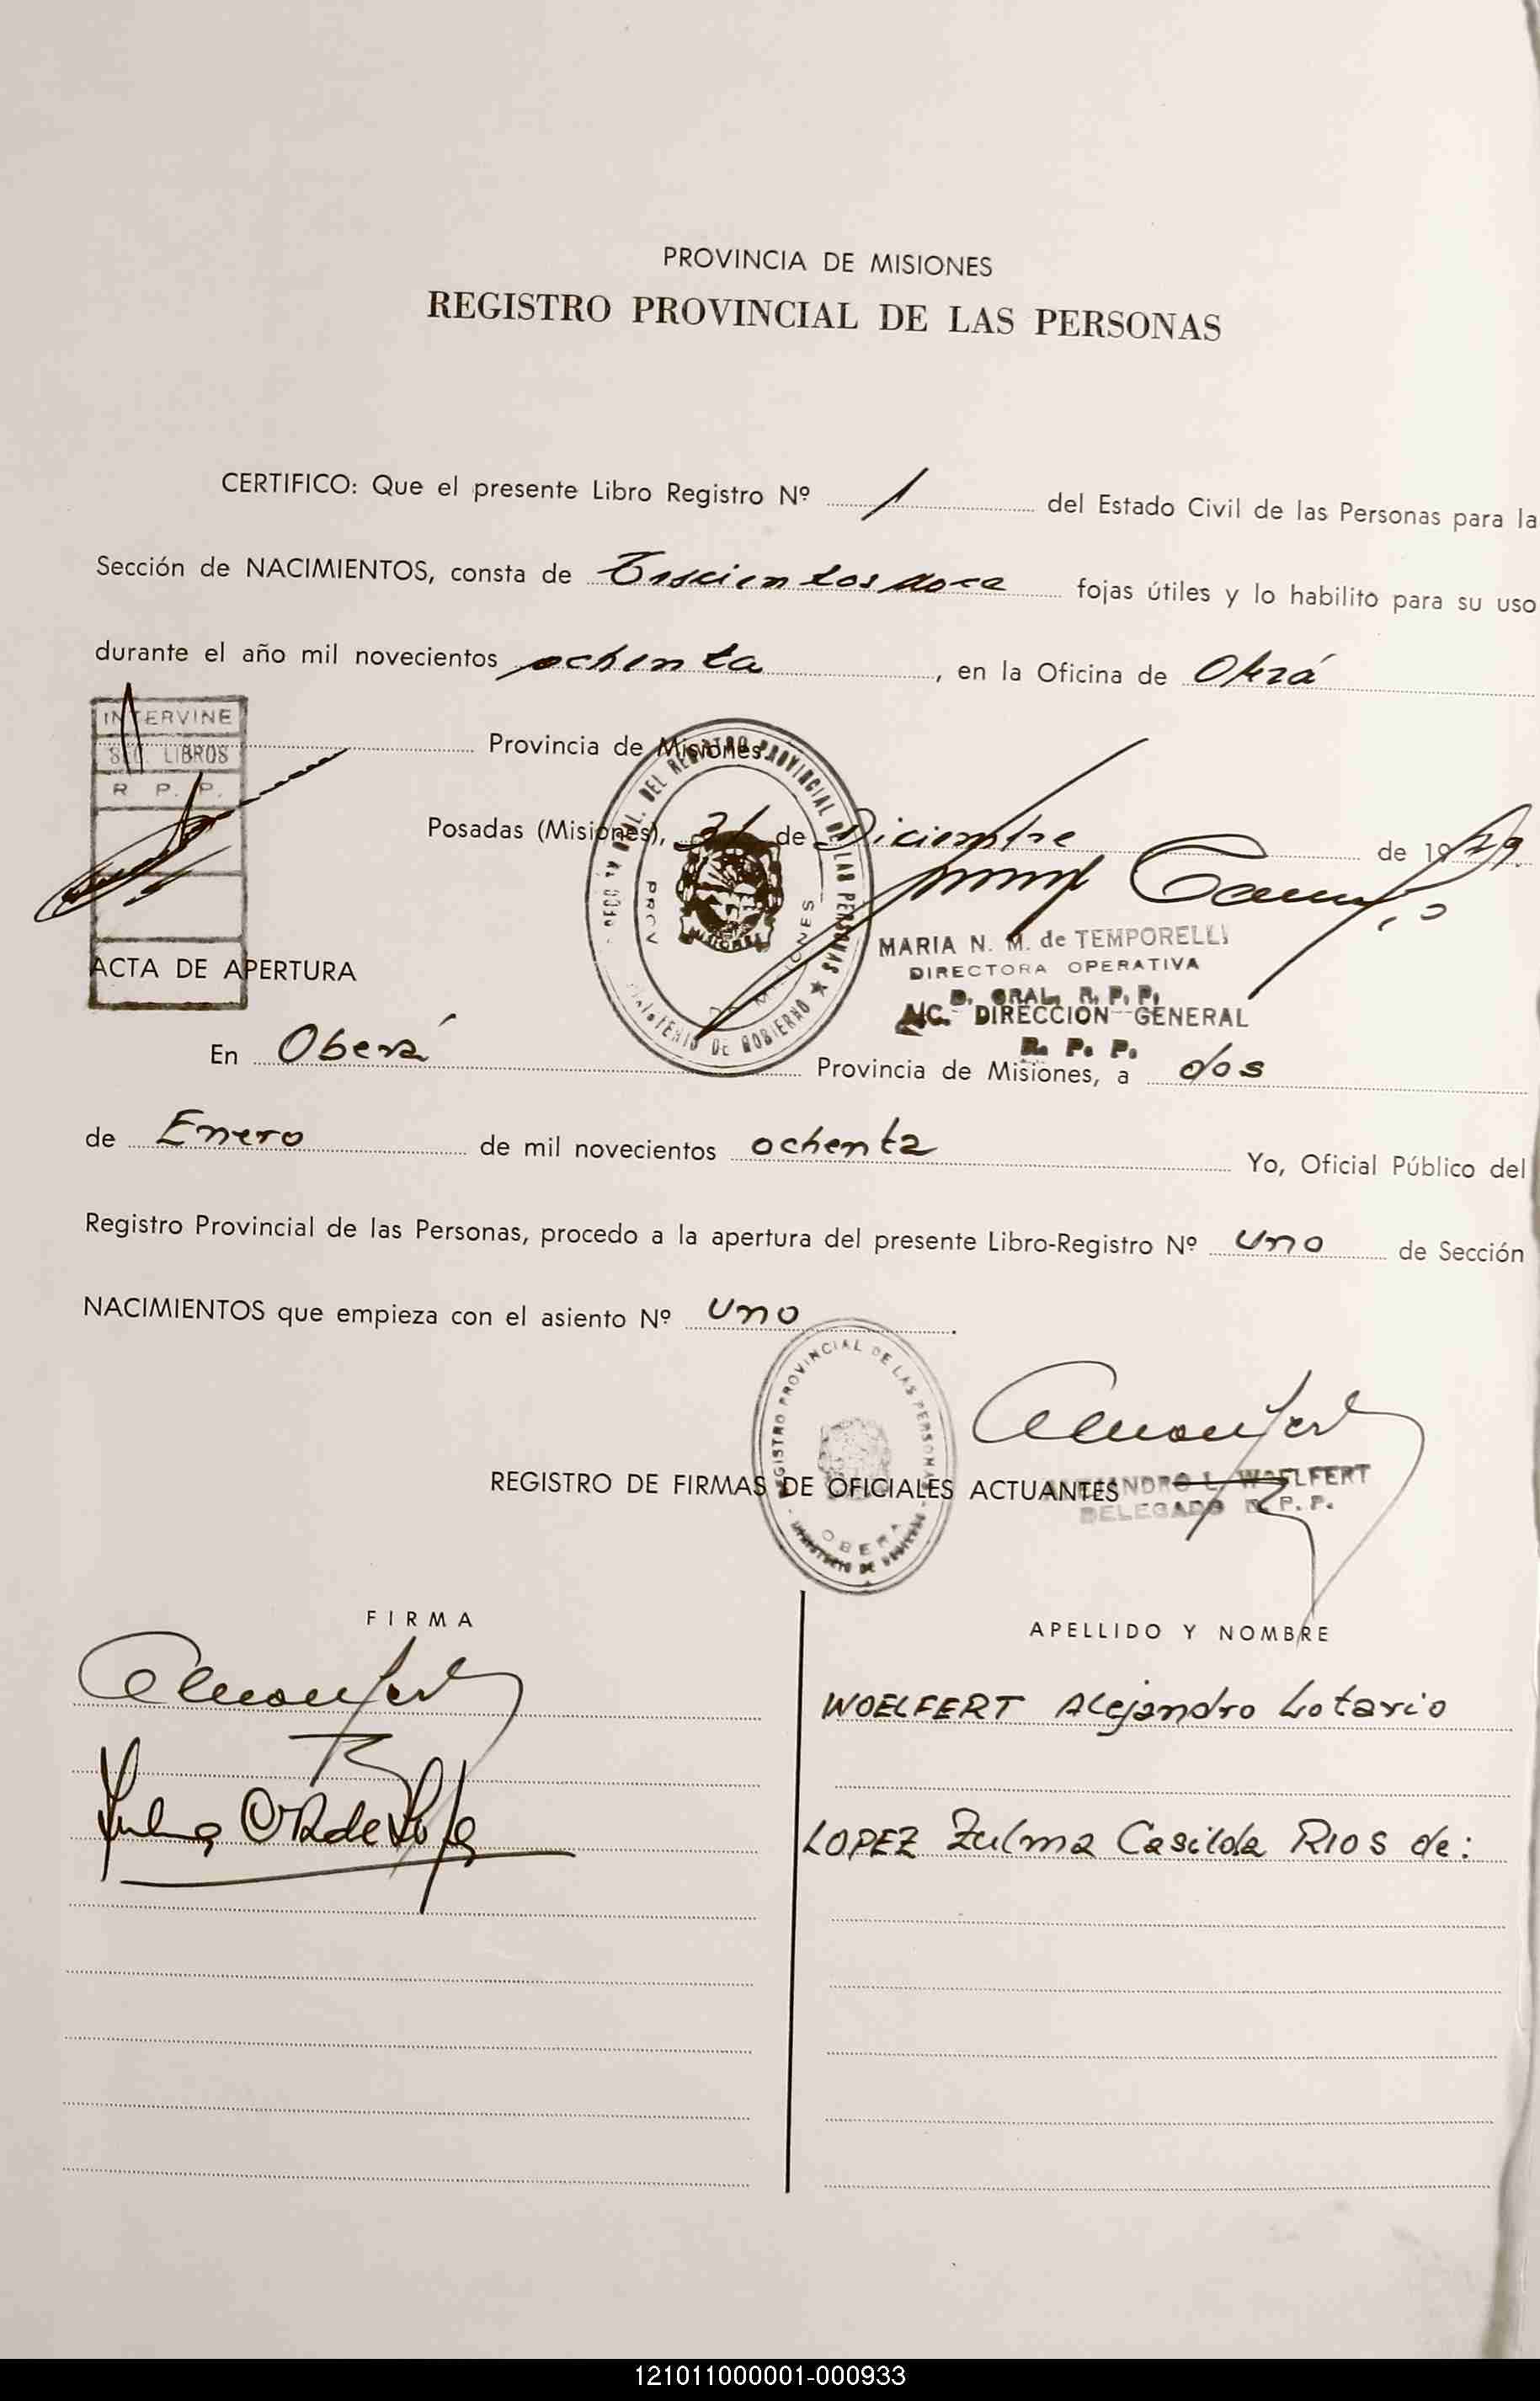 PROVINCIA DE MISIONES
REGISTRO PROVINCIAL DE LAS PERSONAS
CERTIFICO: Que el presente Libro Registro Nº 1 del Estado Civil de las Personas para la
Sección de NACIMIENTOS, consta de Trescientos doce fojas útiles y lo habilito para su uso
durante el año mil novecientos ochenta, en la Oficina de Oberá
INTERVINE
SEC. LIBROS
R. P. P.
Provincia de Misiones.
Posadas (Misiones), 31 de Diciembre de 1979.
DEL REGISTRO PROVINCIAL DE LAS PERSONAS
MINISTERIO DE GOBIERNO
PROV MISIONES
MISIONES
MARIA N. M. de TEMPORELLI
DIRECTORA OPERATIVA
D. GRAL. R. P. P.
A/C. DIRECCION GENERAL
R. P. P.
ACTA DE APERTURA
En Oberá Provincia de Misiones, a dos
de Enero de mil novecientos ochenta Yo, Oficial Público del
Registro Provincial de las Personas, procedo a la apertura del presente Libro-Registro Nº uno de Sección
NACIMIENTOS que empieza con el asiento Nº uno.
REGISTRO PROVINCIAL DE LAS PERSONAS
OBERA
MINISTERIO DE GOBIERNO
ALEJANDRO L. WOELFERT
DELEGADO R. P. P.
REGISTRO DE FIRMAS DE OFICIALES ACTUANTES
FIRMA
APELLIDO Y NOMBRE
WOELFERT Alejandro Lotario
LOPEZ Zulma Casilda RIOS de:
121011000001-000933